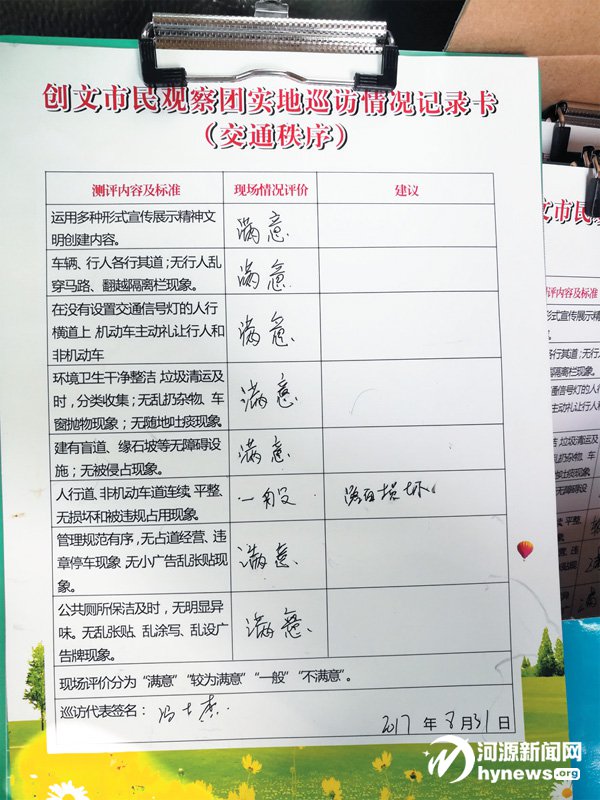 创文市民观察团实地巡访情况记录卡
（交通秩序）
测评内容及标准 现场情况评价 建议
运用多种形式宣传展示精神文
明创建内容。
满意
车辆、行人各行其道；无行人乱
穿马路、翻越隔离栏现象。
满意
在没有设置交通信号灯的人行
横道上，机动车主动礼让行人和
非机动车
满意
环境卫生干净整洁，垃圾清运及
时，分类收集；无乱扔杂物、车
窗抛物现象；无随地吐痰现象。
满意
建有盲道、缘石坡等无障碍设
施；无被侵占现象。
满意
人行道、非机动车道连续、平整、
无损坏和被违规占用现象。
一般
路面损坏。
管理规范有序，无占道经营、违
章停车现象，无小广告乱张贴现
象。
满意
公共厕所保洁及时，无明显异
味。无乱张贴、乱涂写、乱设广
告牌现象。
满意
现场评价分为“满意”“较为满意”“一般”“不满意”。
巡访代表签名：
2017 年 8 月 31 日
河源新闻网
hynews.org